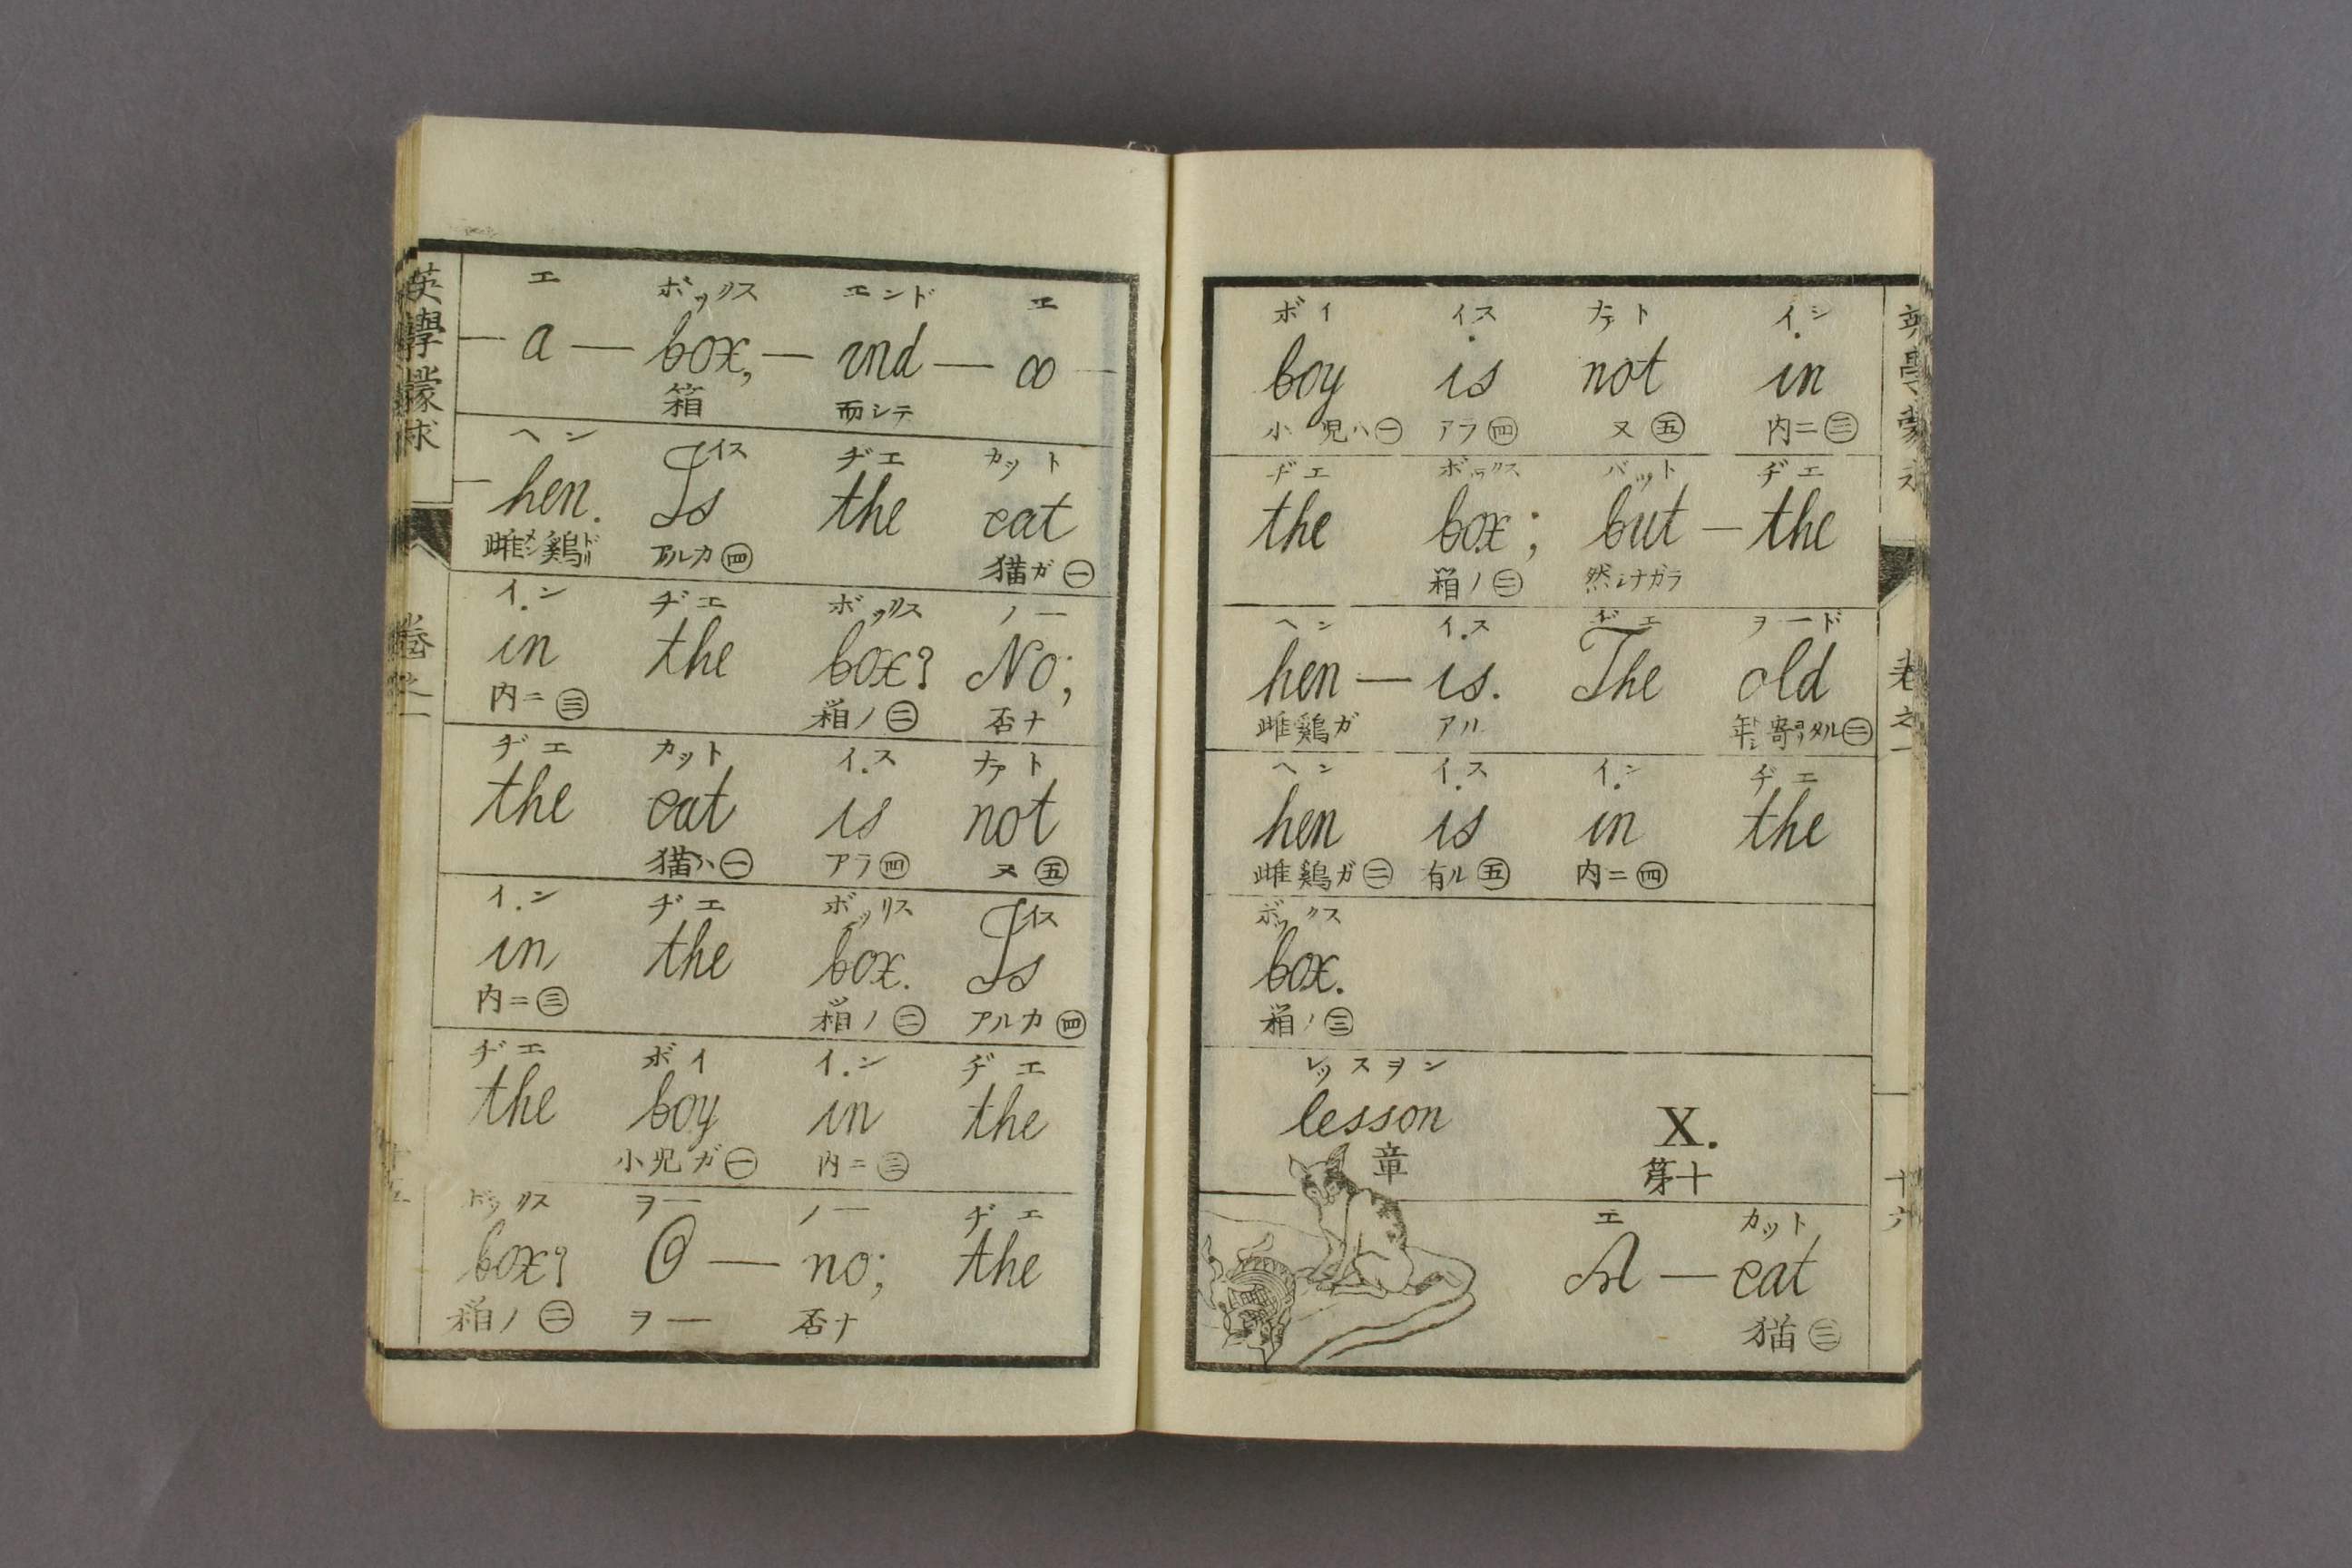 英學捷求
卷之一
十五
エ ボックス エンド エ
— a — box, — and — a —
箱 而シテ
ヘン イス ヂエ カット
— hen. Is the cat
雌メン雞ドリ アルカ㊃ 猫ガ㊀
イン ヂエ ボックス ノー
in the box? No;
内ニ㊂ 箱ノ㊁ 否ナ
ヂエ カット イス ナアト
the cat is not
猫ハ㊀ アラ㊃ ヌ㊄
イン ヂエ ボックス イス
in the box. Is
内ニ㊂ 箱ノ㊁ アルカ㊃
ヂエ ボイ イン ヂエ
the boy in the
小児ガ㊀ 内ニ㊂
ボックス ヲー ノー ヂエ
box? O — no; the
箱ノ㊁ ヲー 否ナ
ボイ イス ナアト イン
boy is not in
小児ハ㊀ アラ㊃ ヌ㊄ 内ニ㊂
ヂエ ボックス バット ヂエ
the box; but — the
箱ノ㊁ 然シナガラ
ヘン イス ヂエ ヲード
hen — is. The old
雌雞ガ アル 年トシ寄ヨリタル㊀
ヘン イス イン ヂエ
hen is in the
雌雞ガ㊁ 有ル㊄ 内ニ㊃
ボックス
box.
箱ノ㊂
レッスヲン
lesson X.
章 第十
エ カット
A — cat
猫㊂
卷之一
十六